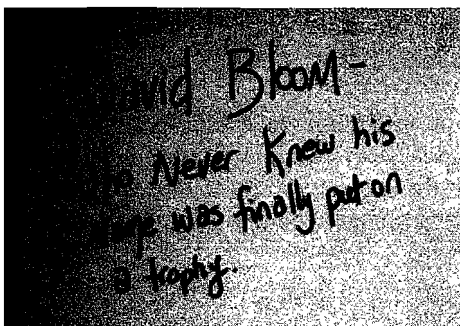 David Bloom-
Who Never Knew his
name was finally put on
a trophy.